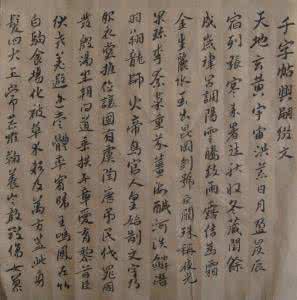 千字帖興嗣綴文
天地玄黃宇宙洪荒日月盈昃辰
宿列張寒來暑往秋收冬藏閏餘
成歲律呂調陽雲騰致雨露結為霜
金生麗水玉出崑岡劍號巨闕珠稱夜光
果珍李柰菜重芥薑海鹹河淡鱗潛
羽翔龍師火帝鳥官人皇始制文字乃
服衣裳推位讓國有虞陶唐弔民伐罪周
發殷湯坐朝問道垂拱平章愛育黎首臣
伏戎羌遐邇壹體率賓歸王鳴鳳在竹
白駒食場化被草木賴及萬方蓋此身
髮四大五常恭惟鞠養豈敢毀傷女慕